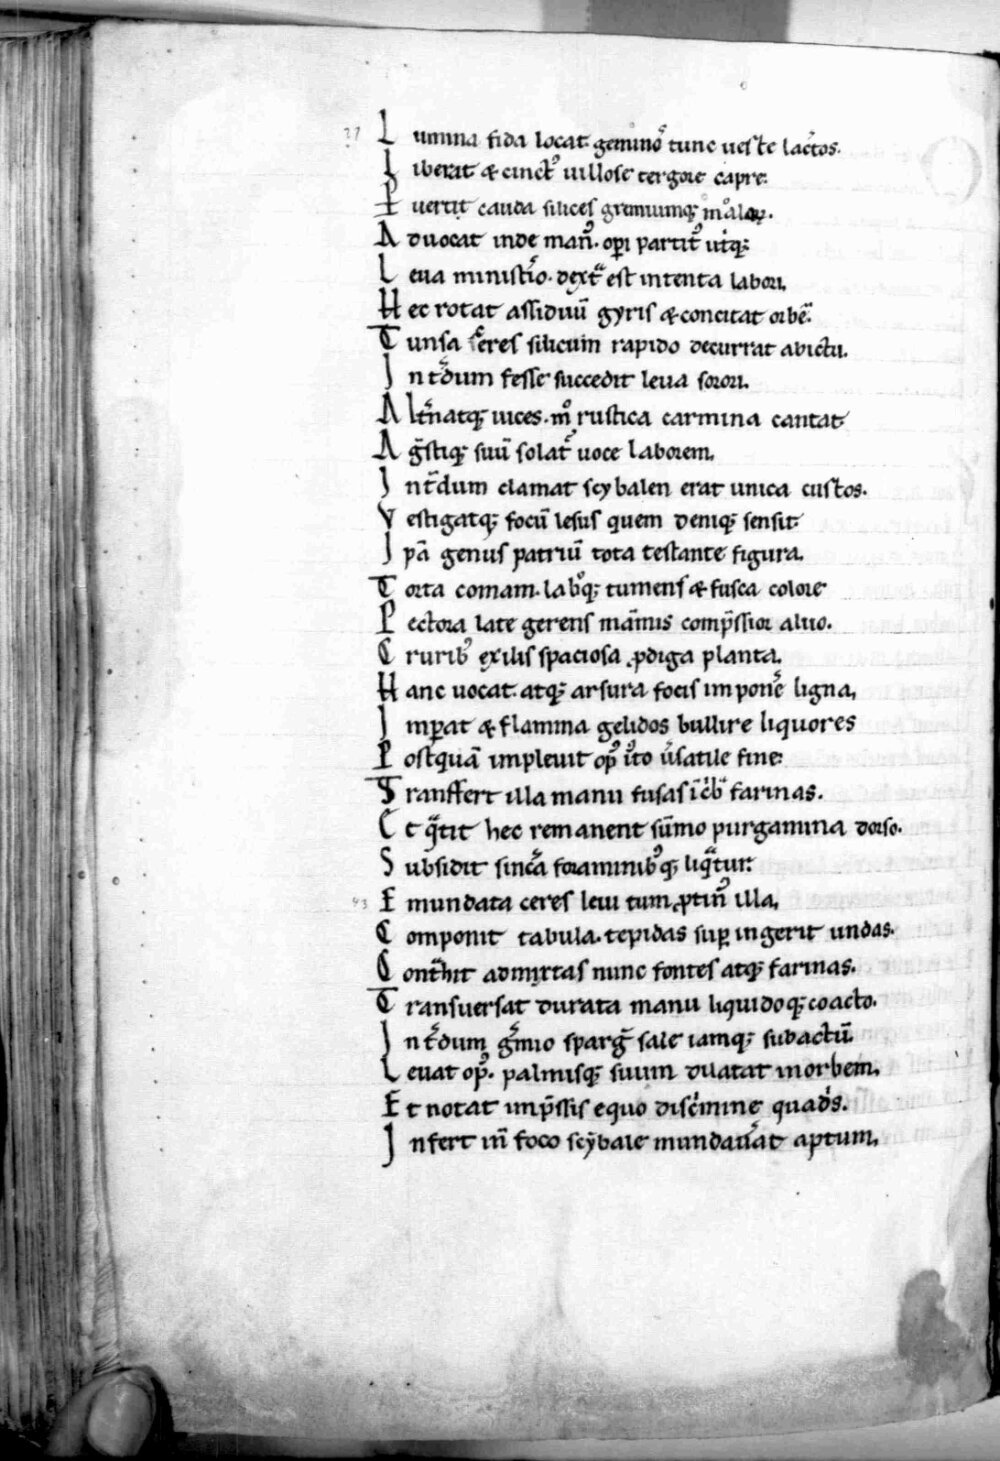 21 L umina fida locat. geminoˢ tunc ueste lac̄tos.
L iberat & cinctꝰ uillose tergore capre.
P uertit cauda silices gremiumqꝫ molaꝝ.
A duocat inde manꝰ. oꝑi partitꝰ utqꝫ
L eua ministͥo. dextᵃ est intenta labori.
H ec rotat assiduū gyris & concitat orbē.
T unsa ceres silicum rapido decurrat abictu.
I nt̄dum fesse succedit leua sorori.
A lt̄natqꝫ uices. mͦ rustica carmina cantat
A g̃stiqꝫ suū solat᷑ uoce laborem.
I nt̄dum clamat scybalen erat unica custos.
V estigatqꝫ focū lesus quem deniqꝫ sensit
I pā genus patriū tota testante figura.
T orta comam. labꝰqꝫ tumens & fusca colore
P ectora late gerens māmis comp̄ssior aluo.
C ruribꝰ exilis spaciosa ꝓdiga planta.
H anc uocat. atqꝫ arsura focis imponē ligna,
I mꝑat & flamma gelidos bullire liquores
P ostquā impleuit opꝰ iͧto ūsatile fine.
T ransfert illa manu fusas ī cͥbͫ farinas.
E t qᵃtit hec remanent sūmo purgamina dorso.
S ubsidit sincᵃ foraminibꝰqꝫ liqᵃtur.
43 E mundata ceres leui tum ꝓtinꝰ illa,
C omponit tabula. tepidas suꝑ ingerit undas.
C ont̄hit admixtas nunc fontes atqꝫ farinas.
T ransuersat durata manu liquidoqꝫ coacto.
I nt̄dum g̃mio sparḡ sale iamqꝫ subactū
L euat opꝰ. palmisqꝫ suum dilatat in orbem,
E t notat imp̄ssis equo discͥmine quadͥs.
I nfert in̄ foco scybale mundaūat aptum,